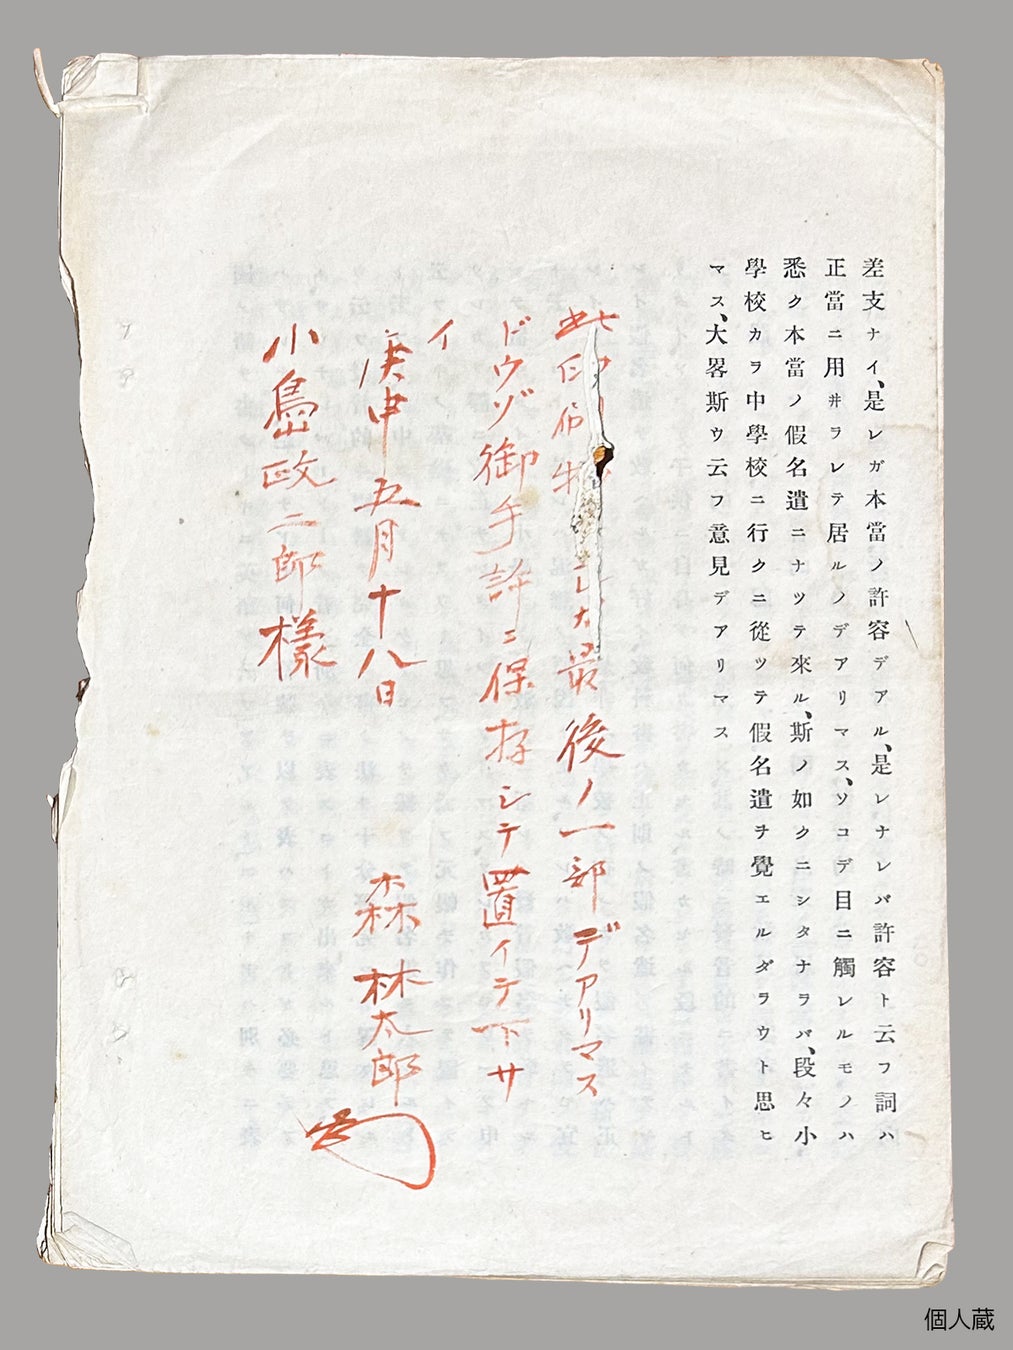 差支ナイ、是レガ本當ノ許容デアル、是レナレバ許容ト云フ詞ハ
正當ニ用井ラレテ居ルノデアリマス、ソコデ目ニ觸レルモノハ
悉ク本當ノ假名遣ニナツテ來ル、斯ノ如クニシタナラバ、段々小
學校カラ中學校ニ行クニ從ツテ假名遣ヲ覺エルダラウト思ヒ
マス、大畧斯ウ云フ意見デアリマス
此印刷物ハ最後ノ一部デアリマス
ドウゾ御手許ニ保存シテ置イテ下サ
イ
庚申五月十八日 森林太郎
小島政二郎樣
個人蔵